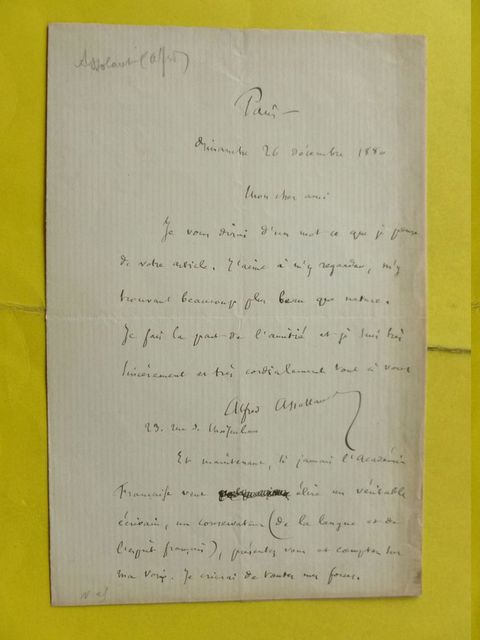 Assolant (Alfred)
Paris —
Dimanche 26 décembre 1880
Mon cher ami
Je vous dirai d'un mot ce que je pense
de votre article. J'aime à m'y regarder, m'y
trouvant beaucoup plus beau que nature.
Je fais la part de l'amitié et je suis très
sincèrement et très cordialement tout à vous
Alfred Assollant
23, rue de
Et maintenant, si jamais l'Académie
Française veut élire un véritable
écrivain, un conservateur (de la langue et de
l'esprit français), présentez vous et comptez sur
ma voix. Je crierai de toutes mes forces.